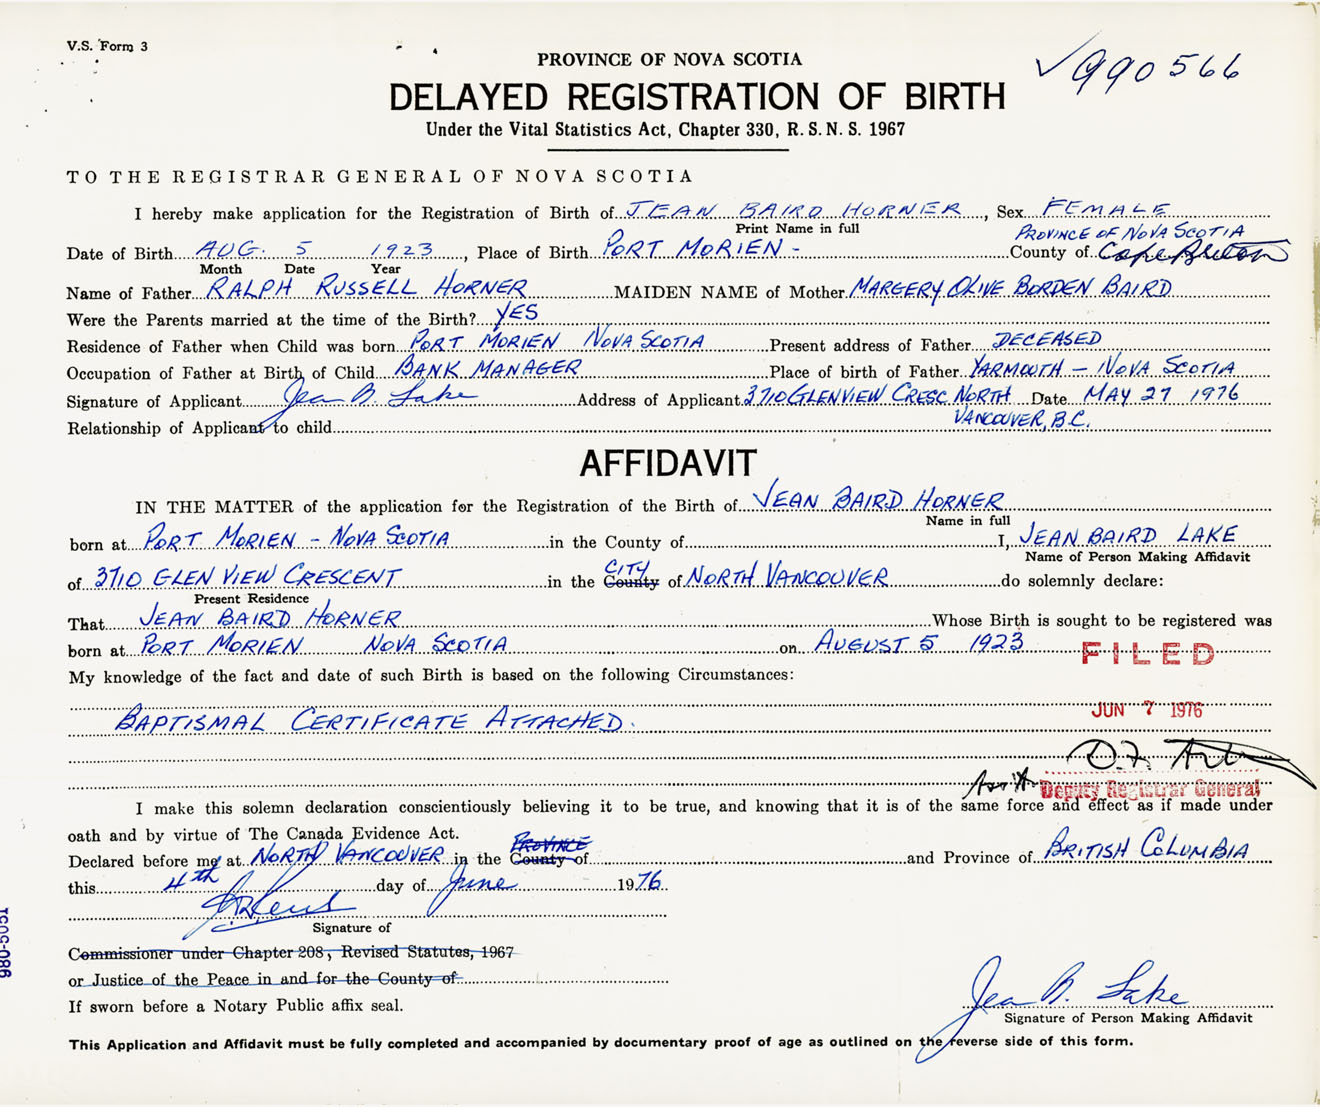 V.S. Form 3
PROVINCE OF NOVA SCOTIA
✓990566
DELAYED REGISTRATION OF BIRTH
Under the Vital Statistics Act, Chapter 330, R.S.N.S. 1967
TO THE REGISTRAR GENERAL OF NOVA SCOTIA
I hereby make application for the Registration of Birth of JEAN BAIRD HORNER, Sex FEMALE
Print Name in full
PROVINCE OF NOVA SCOTIA
Date of Birth AUG. 5 1923, Place of Birth PORT MORIEN - County of Cape Breton
Month Date Year
Name of Father RALPH RUSSELL HORNER MAIDEN NAME of Mother MARGERY OLIVE BORDEN BAIRD
Were the Parents married at the time of the Birth? YES
Residence of Father when Child was born PORT MORIEN NOVA SCOTIA Present address of Father DECEASED
Occupation of Father at Birth of Child BANK MANAGER Place of birth of Father YARMOUTH - NOVA SCOTIA
Signature of Applicant Jean B. Lake Address of Applicant 3710 GLENVIEW CRESC NORTH Date MAY 27 1976
Relationship of Applicant to child VANCOUVER, B.C.
AFFIDAVIT
IN THE MATTER of the application for the Registration of the Birth of JEAN BAIRD HORNER
Name in full
born at PORT MORIEN - NOVA SCOTIA in the County of I, JEAN BAIRD LAKE
Name of Person Making Affidavit
of 3710 GLEN VIEW CRESCENT in the County CITY of NORTH VANCOUVER do solemnly declare:
Present Residence
That JEAN BAIRD HORNER Whose Birth is sought to be registered was
born at PORT MORIEN NOVA SCOTIA on AUGUST 5 1923
FILED
My knowledge of the fact and date of such Birth is based on the following Circumstances:
JUN 7 1976
BAPTISMAL CERTIFICATE ATTACHED.
D.F.
Deputy Registrar General
I make this solemn declaration conscientiously believing it to be true, and knowing that it is of the same force and effect as if made under
oath and by virtue of The Canada Evidence Act.
PROVINCE
Declared before me at NORTH VANCOUVER in the County of and Province of BRITISH COLUMBIA
this 4th day of June 1976
Signature of
Commissioner under Chapter 208, Revised Statutes, 1967
or Justice of the Peace in and for the County of
If sworn before a Notary Public affix seal.
Jean B. Lake
Signature of Person Making Affidavit
This Application and Affidavit must be fully completed and accompanied by documentary proof of age as outlined on the reverse side of this form.
980-5051